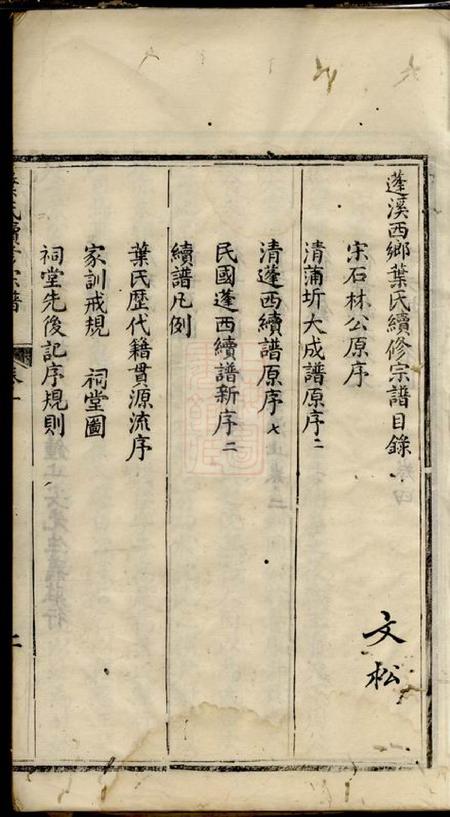 蓬溪西鄉葉氏續修宗譜目錄
文松
宋石林公原序
清蒲圻大成譜原序二
清蓬西續譜原序七
民國蓬西續譜新序二
續譜凡例
葉氏歷代籍貫源流序
家訓戒規 祠堂圖
祠堂先後記序規則
葉氏續修宗譜
卷一